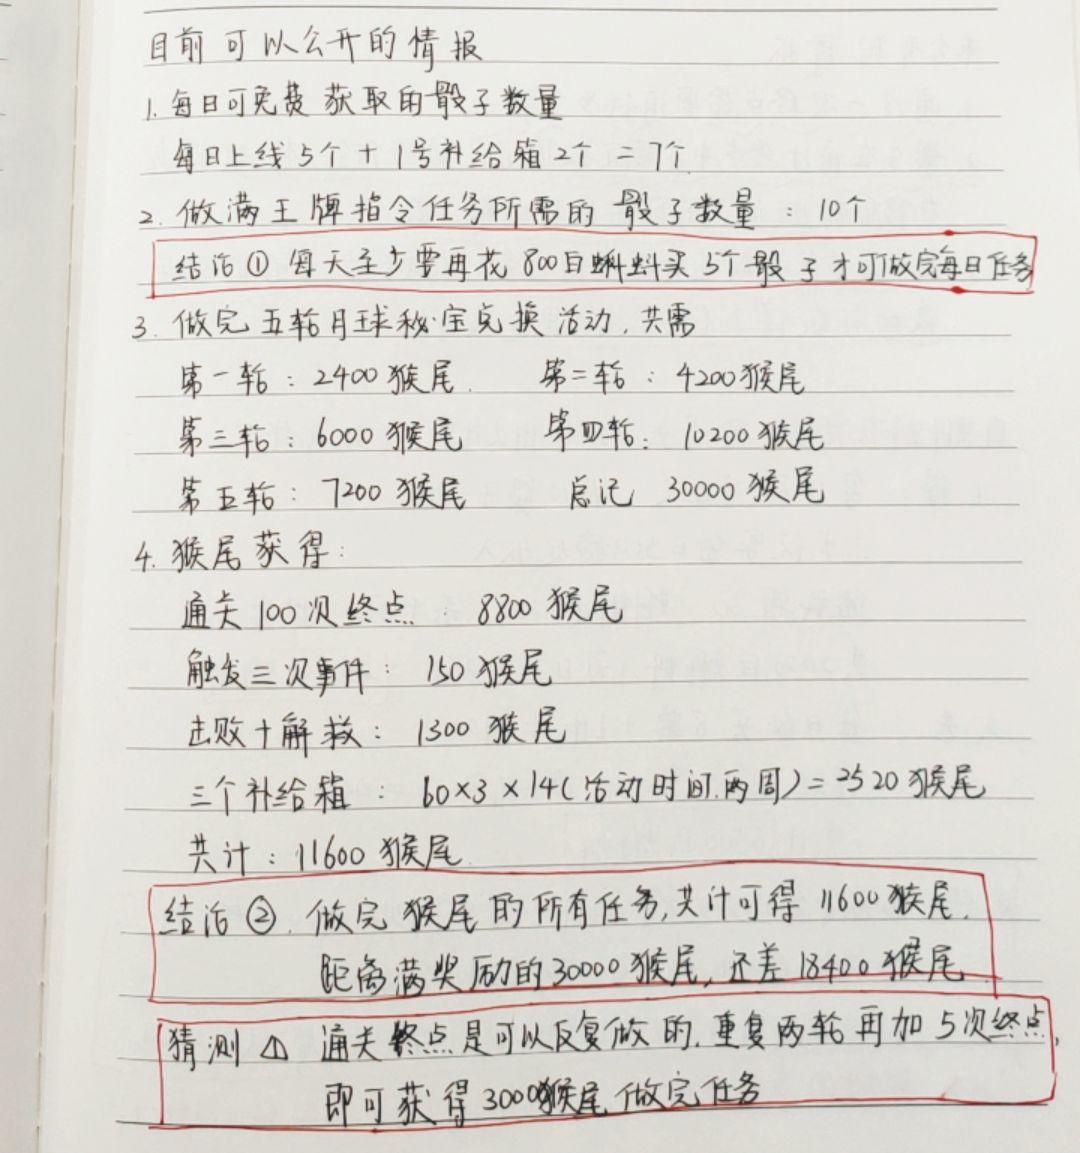 目前可以公开的情报
1.每日可免费获取的骰子数量
每日上线5个+1号补给箱2个=7个
2.做满王牌指令任务所需的骰子数量:10个
结论①每天至少要再花800白蝌蚪买5个骰子才可做完每日任务
3.做完五轮月球秘宝兑换活动,共需
第一轮:2400猴尾. 第二轮:4200猴尾
第三轮:6000猴尾 第四轮:10200猴尾
第五轮:7200猴尾 总记 30000猴尾
4.猴尾获得:
通关100次终点 8800猴尾
触发三次事件:150猴尾
击败+解救:1300猴尾
三个补给箱:60×3×14(活动时间.两周)=2520猴尾
共计:11600猴尾.
结论②.做完猴尾的所有任务,共计可得11600猴尾.
距离满奖励的30000猴尾,还差18400猴尾
猜测⚠通关终点是可以反复做的.重复两轮再加5次终点,
即可获得3000猴尾做完任务